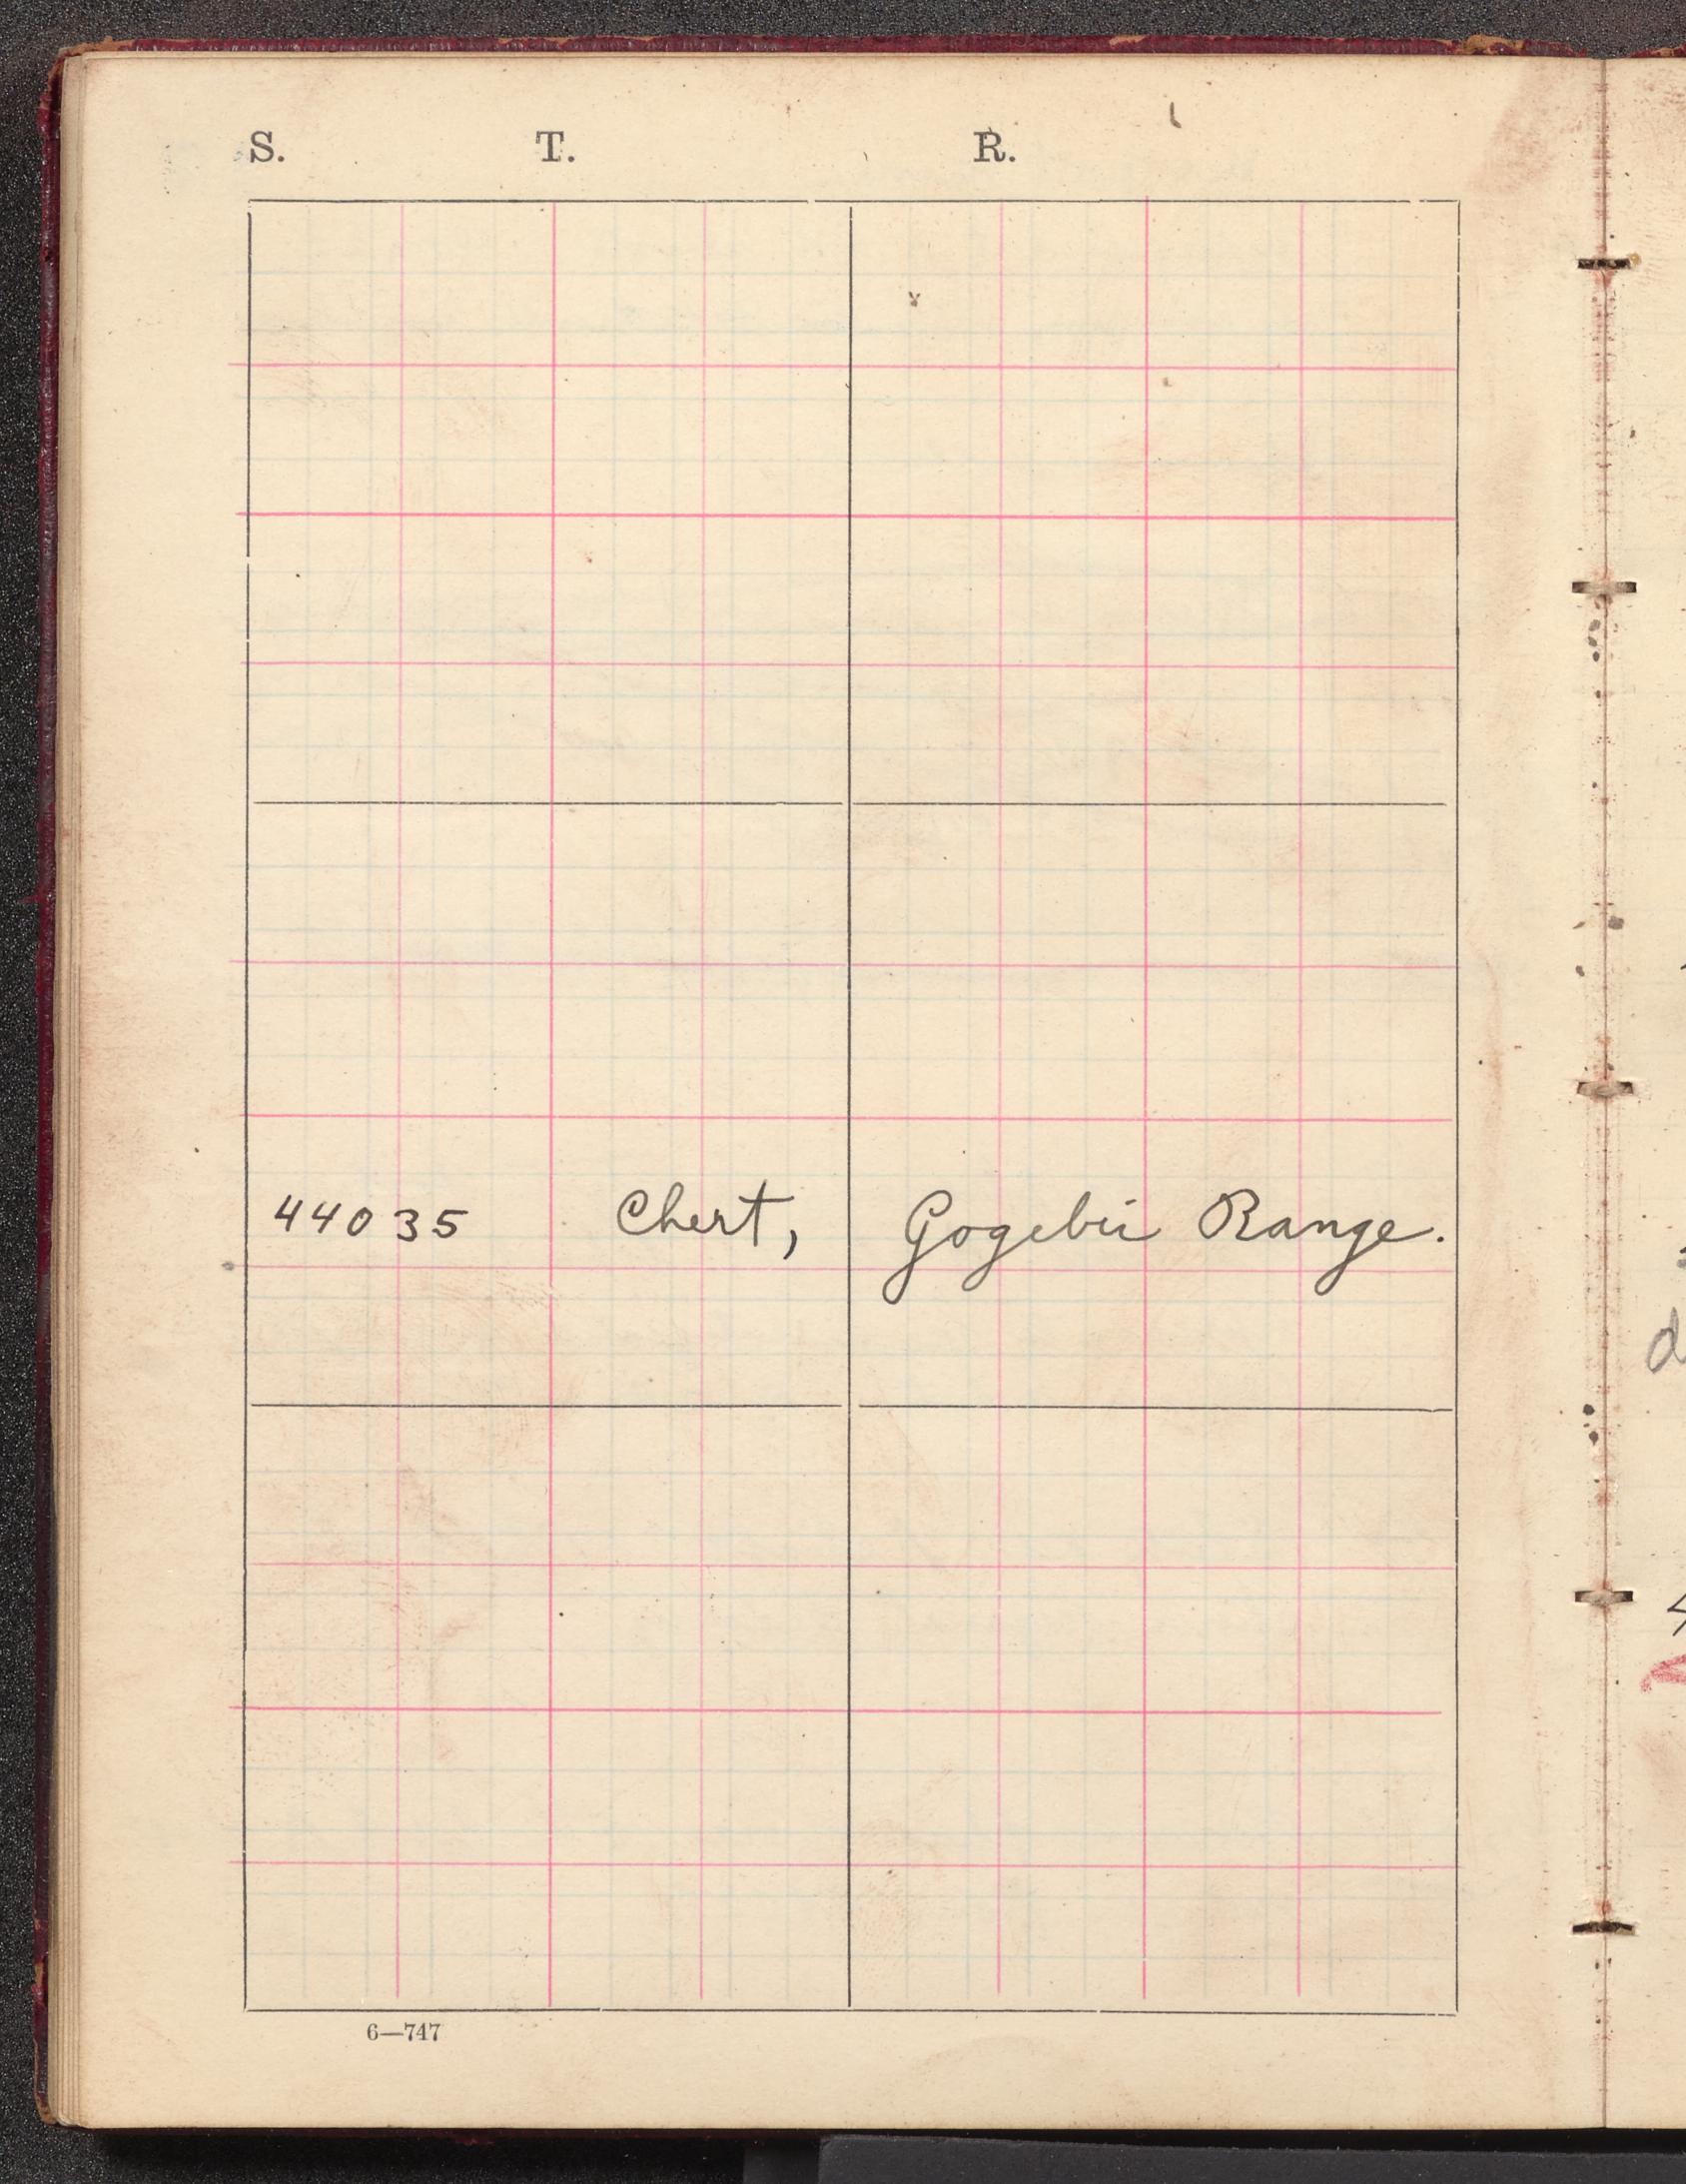 S. T. R.
44035 Chert, Gogebic Range.
6—747